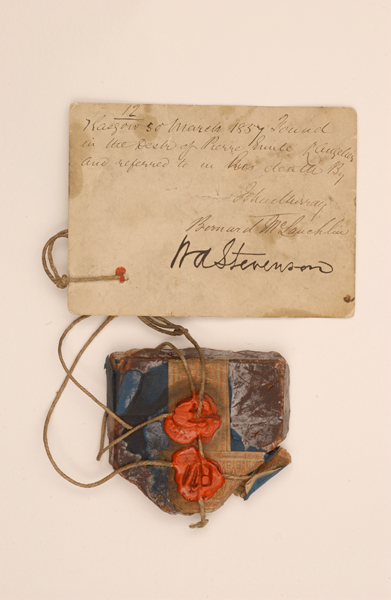 12
Glasgow 30 March 1857 Found
in the Desk of Pierre Emile L'Angelier
and referred to in his death By
John Murray
Bernard McLauchlin
W A Stevenson